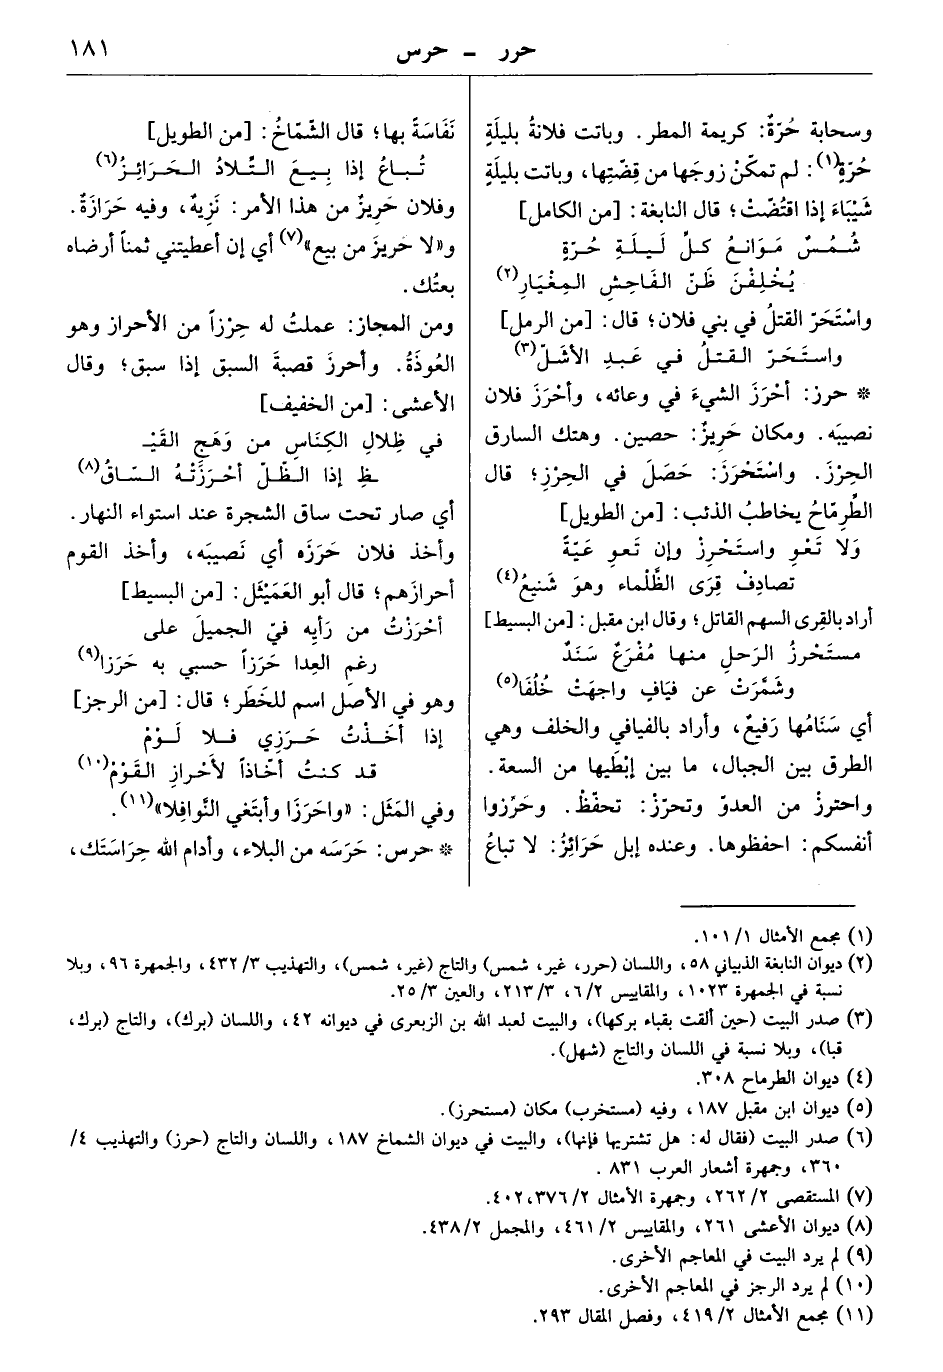 حرر ــ حرس
١٨١
وسحابة حُرّةٌ: كريمة المطر. وباتت فلانةُ بليلَةِ
حُرّةٍ(١): لم تمكّنْ زوجَها من قِضّتِها، وباتت بليلَةِ
شَيْبَاءَ إذا اقتُضّتْ؛ قال النابغة: [من الكامل]
شُمُسٌ مَوَانعُ كلِّ لَيلَةِ حُرّةٍ
يُخْلِفْنَ ظَنّ الفَاحشِ المِغْيَارِ(٢)
واسْتَحَرّ القتلُ في بني فلان؛ قال: [من الرمل]
واستَحَرّ القتلُ في عَبدِ الأشَلّ(٣)
* حرز: أحْرَزَ الشيءَ في وعائه، وأحْرَزَ فلان
نصيبَه. ومكان حَرِيزٌ: حصين. وهتك السارق
الحِرْزَ. واسْتَحْرَزَ: حَصَلَ في الحِرْزِ؛ قال
الطِّرِمّاحُ يخاطبُ الذئب: [من الطويل]
وَلا تَعْوِ واستَحْرِزْ وإن تَعوِ عَيّةً
تصادِفْ قِرَى الظَّلْماء وهوَ شَنيعُ(٤)
أراد بالقِرى السهم القاتل؛ وقال ابن مقبل: [من البسيط]
مستَحْرزُ الرَحلِ منها مُفْرَعٌ سَنَدٌ
وشَمَّرَتْ عن فيَافٍ واجهَتْ خُلُفَا(٥)
أي سَنَامُها رَفيعٌ، وأراد بالفيافي والخلف وهي
الطرق بين الجبال، ما بين إبْطَيها من السعة.
واحترزْ من العدوّ وتحرّزْ: تحفّظْ. وحَرِّزوا
أنفسكم: احفظوها. وعنده إبل حَرَائِزُ: لا تباعُ
نَفَاسَةً بها؛ قال الشّمّاخُ: [من الطويل]
تُباعُ إذا بِيعَ التِّلادُ الحَرَائِزُ(٦)
وفلان حَرِيزٌ من هذا الأمر: نَزِيهٌ، وفيه حَرَازَةٌ.
و«لا حَريزَ من بيع»(٧) أي إن أعطيتني ثمناً أرضاه
بعتُك.
ومن المجاز: عملتُ له حِرْزاً من الأحراز وهو
العُوذَةُ. وأحرزَ قصبةَ السبق إذا سبق؛ وقال
الأعشى: [من الخفيف]
في ظِلالِ الكِنَاسِ من وَهَجِ القَيْـ
ـظِ إذا الظّلّ أحْرَزَتْهُ السّاقُ(٨)
أي صار تحت ساق الشجرة عند استواء النهار.
وأخذ فلان حَرَزَه أي نَصيبَه، وأخذ القوم
أحرازَهم؛ قال أبو العَمَيْثَل: [من البسيط]
أحْرَزْتُ من رَأيِه فيّ الجميلَ على
رغمِ العِدا حَرَزاً حسبي به حَرَزا(٩)
وهو في الأصل اسم للخَطَر؛ قال: [من الرجز]
إذا أخَذْتُ حَرَزِي فلا لَوْمْ
قد كنتُ أخّاذاً لأحْرازِ القَوْمْ(١٠)
وفي المَثَل: «واحَرَزَا وأبتَغي النَّوافِلا»(١١).
* حرس: حَرَسَه من البلاء، وأدام الله حِرَاسَتَك،
(١) مجمع الأمثال ١/ ١٠١.
(٢) ديوان النابغة الذبياني ٥٨، واللسان (حرر، غير، شمس) والتاج (غير، شمس)، والتهذيب ٣/ ٤٣٢، والجمهرة ٩٦، وبلا
نسبة في الجمهرة ١٠٢٣، والمقاييس ٢/ ٦، ٣/ ٢١٣، والعين ٣/ ٢٥.
(٣) صدر البيت (حين ألقت بقباء بركها)، والبيت لعبد الله بن الزبعرى في ديوانه ٤٢، واللسان (برك)، والتاج (برك،
قبا)، وبلا نسبة في اللسان والتاج (شهل).
(٤) ديوان الطرماح ٣٠٨.
(٥) ديوان ابن مقبل ١٨٧، وفيه (مستخرب) مكان (مستحرز).
(٦) صدر البيت (فقال له: هل تشتريها فإنها)، والبيت في ديوان الشماخ ١٨٧، واللسان والتاج (حرز) والتهذيب ٤/
٣٦٠، وجمهرة أشعار العرب ٨٣١ .
(٧) المستقصى ٢/ ٢٦٢، وجمهرة الأمثال ٢/ ٣٧٦، ٤٠٢.
(٨) ديوان الأعشى ٢٦١، والمقاييس ٢/ ٤٦١، والمجمل ٢/ ٤٣٨.
(٩) لم يرد البيت في المعاجم الأخرى.
(١٠) لم يرد الرجز في المعاجم الأخرى.
(١١) مجمع الأمثال ٢/ ٤١٩، وفصل المقال ٢٩٣.